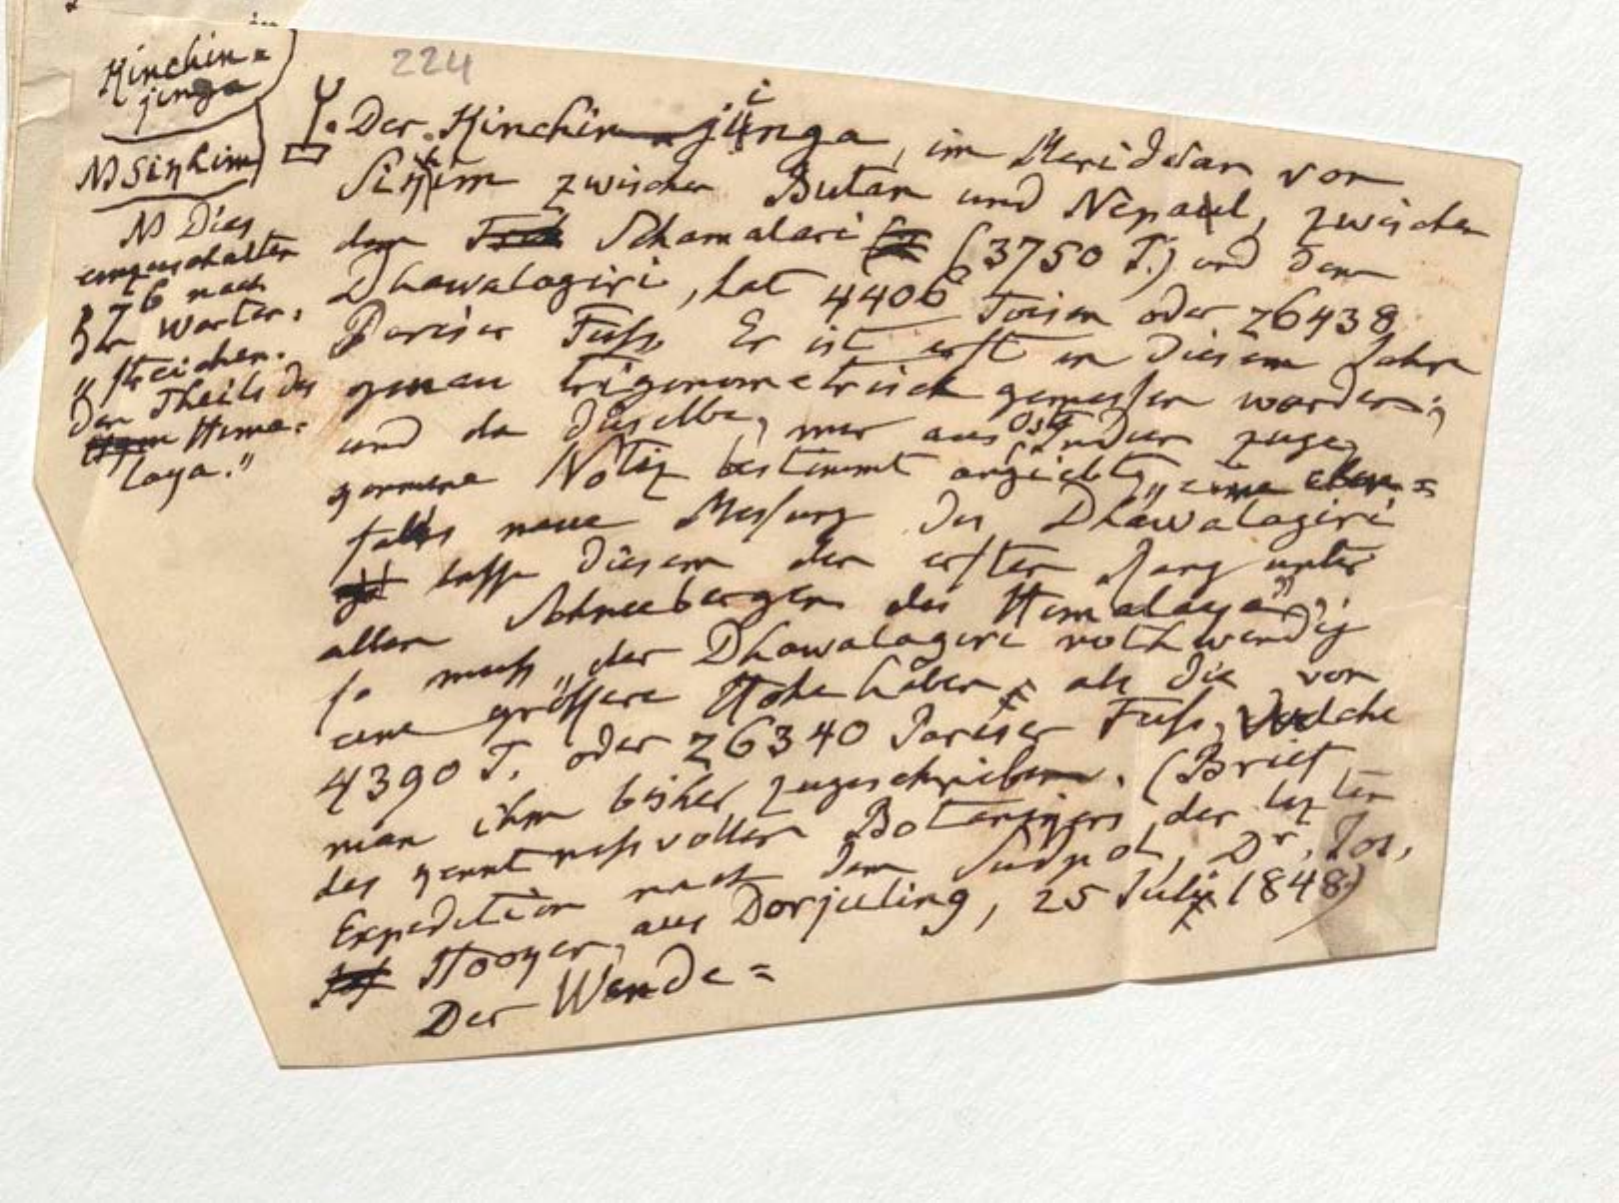 224
Kinchin=
jinga
NB Sikkim
NB Dies
eingeschaltet
S 76 nach
den Worten:
„ streichen.
den Theils des
Hima=
laya."
Der Kinchin-jinga, im Meridian von
Sikkim zwischen Butan und Nepaul, zwischen
dem Schamalari (3750 T.) und dem
Dhawalagiri, hat 4406 Toisen oder 26438
Pariser Fuss. Er ist erst in diesem Jahre
genau trigonometrisch gemessen worden;
und da dieselbe, mir aus Ostindien zuge
kommene Notiz bestimmt angiebt, „eine eben=
falls neue Messung des Dhawalagiri
lasse diesem den ersten Rang unter
allen Schneebergen des Himalaya";
so muss der Dhawalagiri nothwendig
eine grössere Höhe haben, als die von
4390 T. oder 26340 Pariser Fuss, welche
man ihm bisher zugeschrieben. (Brief
des kenntnissvollen Botanikers der letzten
Expedition nach dem Südpol, Dr. Jos.
Hooker, aus Dorjiling, 25 July 1848)
Der Wende=